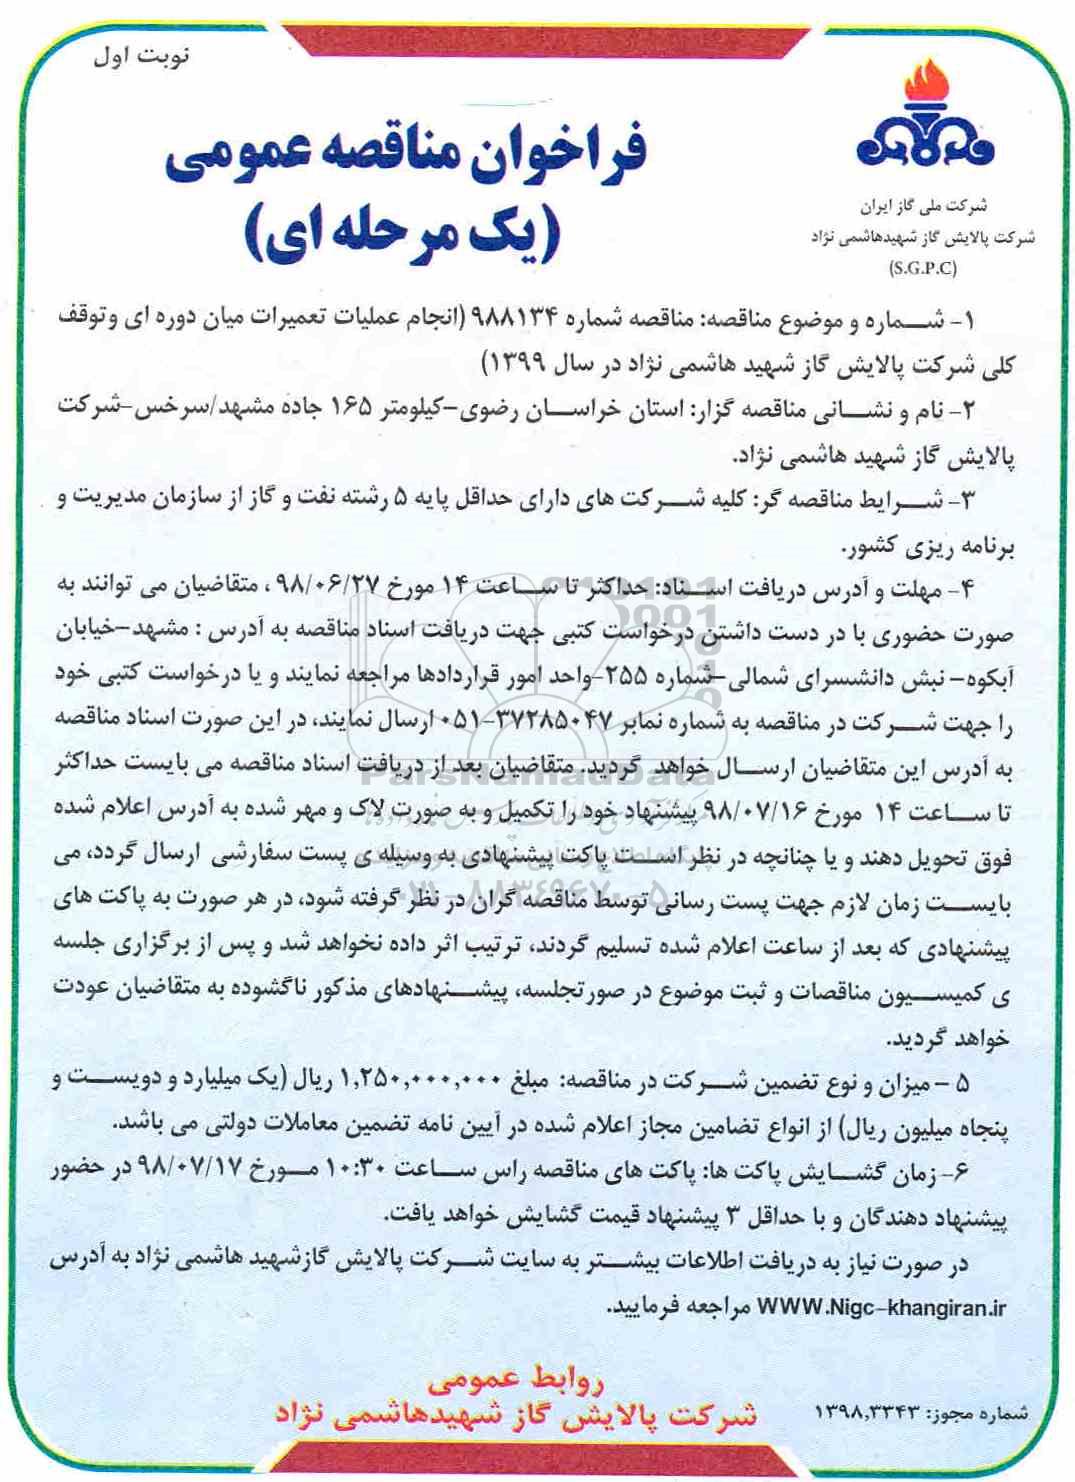 نوبت اول
شرکت ملی گاز ایران
شرکت پالایش گاز شهیدهاشمی نژاد
(S.G.P.C)
فراخوان مناقصه عمومی
(یک مرحله ای)
۱- شماره و موضوع مناقصه: مناقصه شماره ۹۸۸۱۳۴ (انجام عملیات تعمیرات میان دوره ای وتوقف
کلی شرکت پالایش گاز شهید هاشمی نژاد در سال ۱۳۹۹)
۲- نام و نشانی مناقصه گزار: استان خراسان رضوی-کیلومتر ۱۶۵ جاده مشهد/سرخس-شرکت
پالایش گاز شهید هاشمی نژاد.
۳- شرایط مناقصه گر: کلیه شرکت های دارای حداقل پایه ۵ رشته نفت و گاز از سازمان مدیریت و
برنامه ریزی کشور.
۴- مهلت و آدرس دریافت اسناد: حداکثر تا ساعت ۱۴ مورخ ۹۸/۰۶/۲۷ ، متقاضیان می توانند به
صورت حضوری با در دست داشتن درخواست کتبی جهت دریافت اسناد مناقصه به آدرس : مشهد-خیابان
آبکوه- نبش دانشسرای شمالی-شماره ۲۵۵-واحد امور قراردادها مراجعه نمایند و یا درخواست کتبی خود
را جهت شرکت در مناقصه به شماره نمابر ۳۷۲۸۵۰۴۷-۰۵۱ ارسال نمایند، در این صورت اسناد مناقصه
به آدرس این متقاضیان ارسال خواهد گردید. متقاضیان بعد از دریافت اسناد مناقصه می بایست حداکثر
تا ساعت ۱۴ مورخ ۹۸/۰۷/۱۶ پیشنهاد خود را تکمیل و به صورت لاک و مهر شده به آدرس اعلام شده
فوق تحویل دهند و یا چنانچه در نظر است پاکت پیشنهادی به وسیله ی پست سفارشی ارسال گردد، می
بایست زمان لازم جهت پست رسانی توسط مناقصه گران در نظر گرفته شود، در هر صورت به پاکت های
پیشنهادی که بعد از ساعت اعلام شده تسلیم گردند، ترتیب اثر داده نخواهد شد و پس از برگزاری جلسه
ی کمیسیون مناقصات و ثبت موضوع در صورتجلسه، پیشنهادهای مذکور ناگشوده به متقاضیان عودت
خواهد گردید.
۵ - میزان و نوع تضمین شرکت در مناقصه: مبلغ ۱,۲۵۰,۰۰۰,۰۰۰ ریال (یک میلیارد و دویست و
پنجاه میلیون ریال) از انواع تضامین مجاز اعلام شده در آیین نامه تضمین معاملات دولتی می باشد.
۶- زمان گشایش پاکت ها: پاکت های مناقصه راس ساعت ۱۰:۳۰ مورخ ۹۸/۰۷/۱۷ در حضور
پیشنهاد دهندگان و با حداقل ۳ پیشنهاد قیمت گشایش خواهد یافت.
در صورت نیاز به دریافت اطلاعات بیشتر به سایت شرکت پالایش گازشهید هاشمی نژاد به آدرس
WWW.Nigc-khangiran.ir مراجعه فرمایید.
روابط عمومی
شرکت پالایش گاز شهیدهاشمی نژاد
شماره مجوز: ۱۳۹۸,۳۳۴۳
ParsNamadData
۰۲۱-۸۸۳۴۹۶۷۰-۵